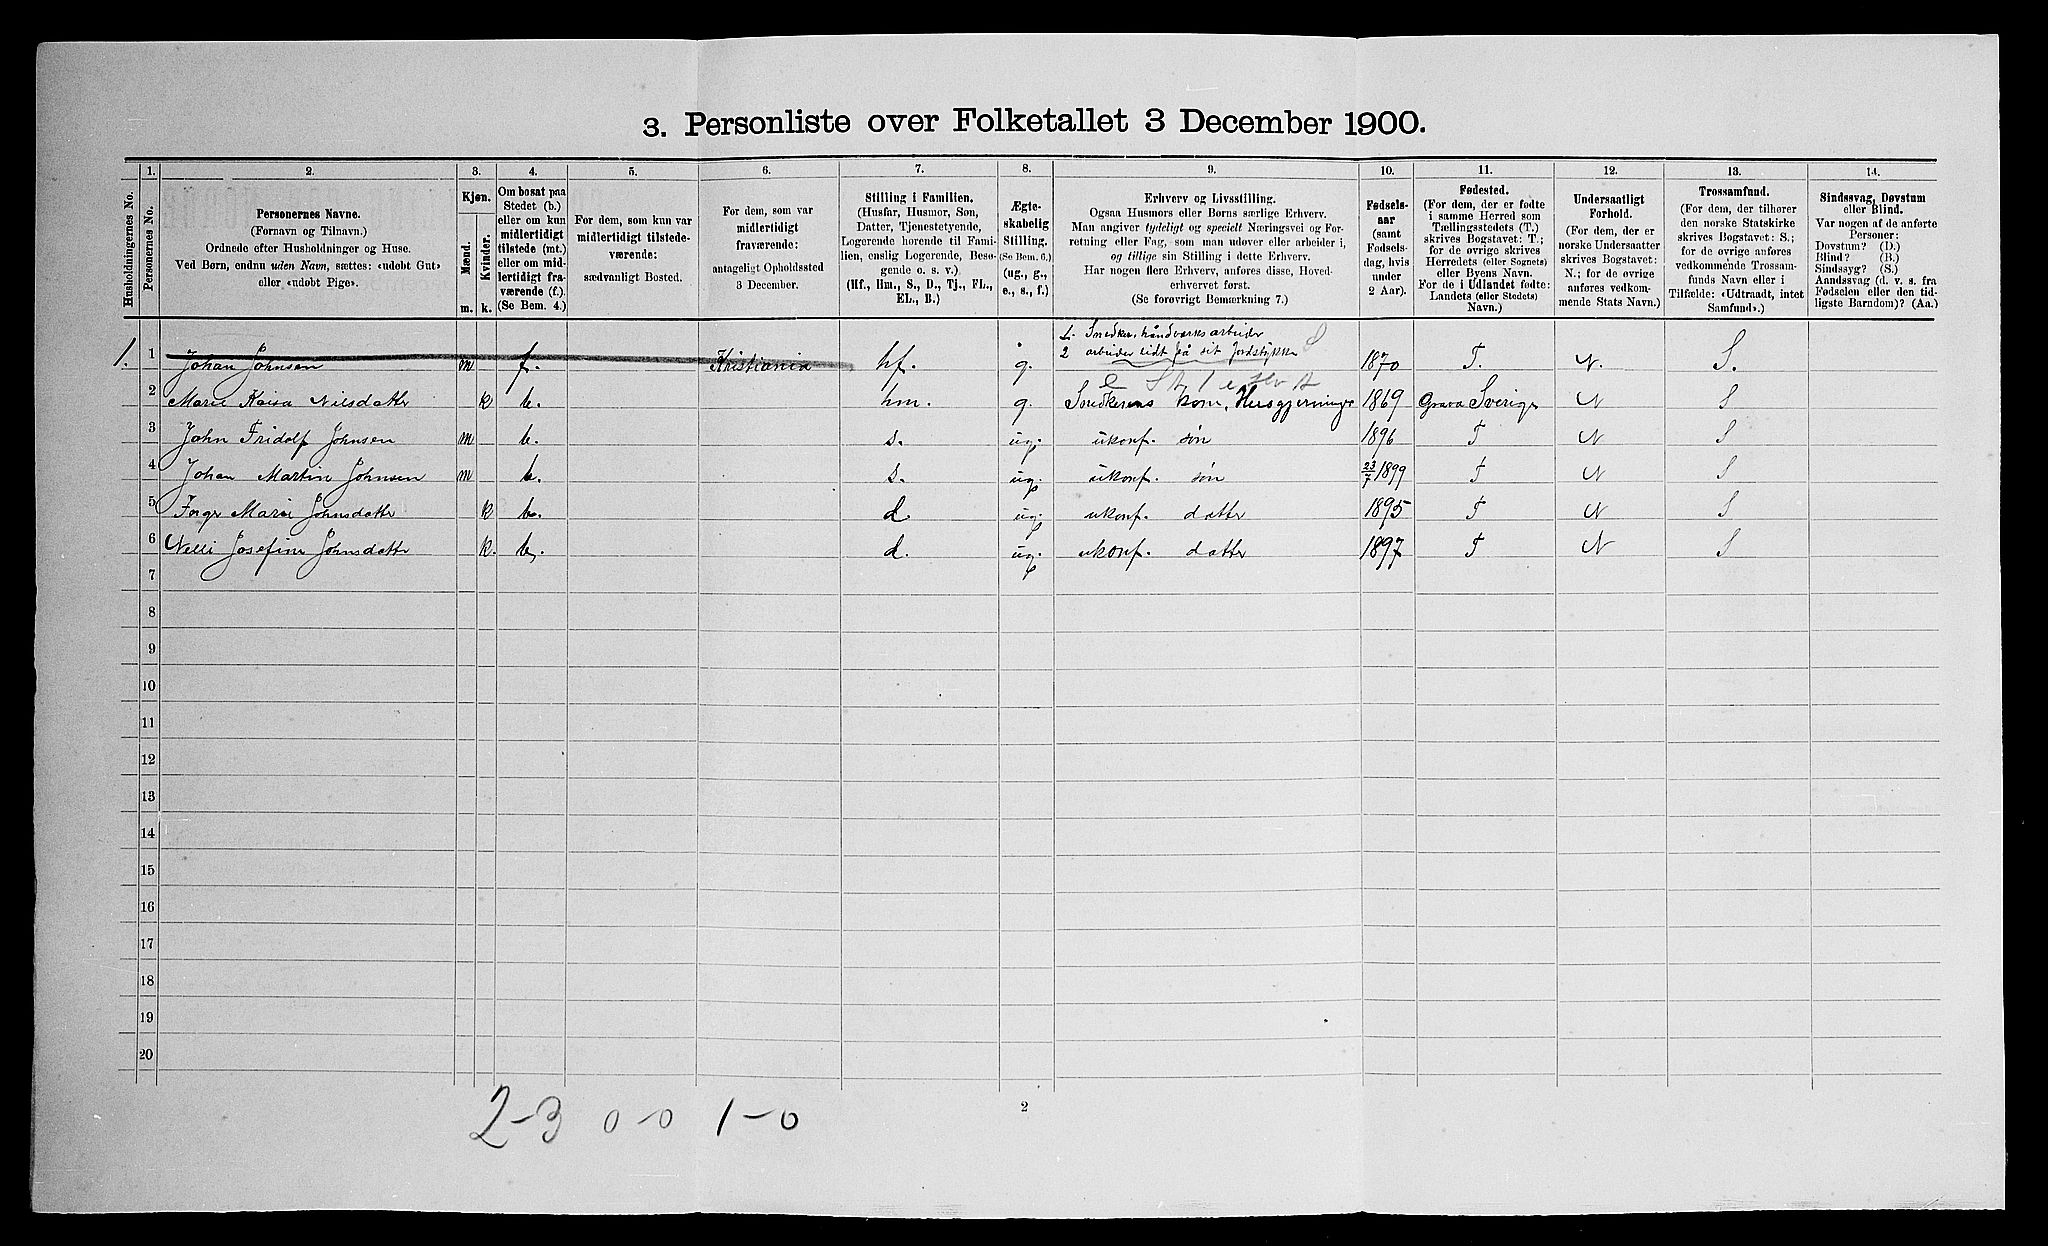 3. Personliste over Folketallet 3 December 1900.
Husholdningernes No.
1.
Personernes No.
2.
Personernes Navne.
(Fornavn og Tilnavn.)
Ordnede efter Husholdninger og Huse.
Ved Børn, endnu uden Navn, sættes: «udøbt Gut»
eller «udøbt Pige».
3.
Kjøn.
Mænd.
Kvinder.
m.
k.
4.
Om bosat paa
Stedet (b.)
eller om kun
midlertidigt
tilstede (mt.)
eller om mid-
lertidigt fra-
værende (f.).
(Se Bem. 4.)
5.
For dem, som kun var
midlertidigt tilstede-
værende:
sædvanligt Bosted.
6.
For dem, som var
midlertidigt
fraværende:
antageligt Opholdssted
3 December.
7.
Stilling i Familien.
(Husfar, Husmor, Søn,
Datter, Tjenestetyende,
Logerende hørende til Fami-
lien, enslig Logerende, Besø-
gende o. s. v.)
(Hf., Hm., S., D., Tj., FL.,
EL., B.)
8.
Ægte-
skabelig
Stilling.
(Se Bem. 6.)
(ug., g.,
e., s., f.)
9.
Erhverv og Livsstilling.
Ogsaa Husmors eller Børns særlige Erhverv.
Man angiver tydeligt og specielt Næringsvei og For-
retning eller Fag, som man udøver eller arbeider i,
og tillige sin Stilling i dette Erhverv.
Har nogen flere Erhverv, anføres disse, Hoved-
erhvervet først.
(Se forøvrigt Bemerkning 7.)
10.
Fødsels-
aar
(samt
Fødsels-
dag, hvis
under
2 Aar).
11.
Fødested.
(For dem, der er fødte
i samme Herred som
Tællingsstedets (T.)
skrives Bogstavet: T.;
for de øvrige skrives
Herredets (eller Sognets)
eller Byens Navn.
For de i Udlandet fødte:
Landets (eller Stedets)
Navn.)
12.
Undersaatligt
Forhold.
(For dem, der er
norske Undersaatter
skrives Bogstavet:
N.; for de øvrige
anføres vedkom-
mende Stats Navn.)
13.
Trossamfund.
(For dem, der tilhører
den norske Statskirke
skrives Bogstavet: S.;
for de øvrige anføres
vedkommende Trossam-
funds Navn eller i
Tilfælde: «Udtraadt, intet
Samfund».)
14.
Sindssvag, Døvstum
eller Blind.
Var nogen af de anførte
Personer:
Døvstum? (D.)
Blind? (B.)
Sindssyg? (S.)
Aandssvag (d. v. s. fra
Fødselen eller den tid-
ligste Barndom)? (Aa.)
1. Snedker, håndverksarbeider
2 arbeider lidt på sit Jordstykke
1. 1 Johan Johnsen m f. Kristiania hf. g. 1870 T. N. S.
2 Marie Kaisa Nilsdatter k b. hm. g. Snedkerens kone, Husgjerninger 1869 Grava Sverige N S
3 John Fridolf Johnsen m b. s. ug. ukonf. søn 1896 T N S
4 Johan Martin Johnsen m b. s. ug. ukonf. søn 23/7 1899 T N S
5 Marie Johnsdatter k b. d. ug. ukonf. datter 1895 T N S
6 Nelli Josefine Johnsdatter k. b. d. ug. ukonf. datter 1897 T N S
7
8
9
10
11
12
13
14
15
16
17
18
19
20
2-3 0-0 1-0
2